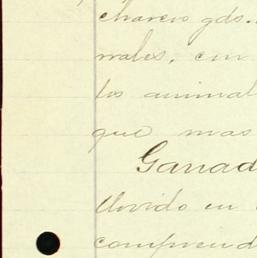 charcos gds.
rrales, con
los animal
que mas
Ganad
llovido en
comprend